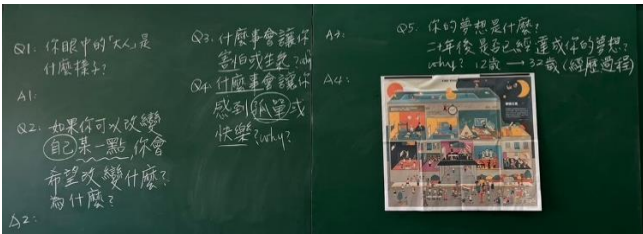 Q1: 你眼中的「大人」是
什麼樣子?
A1:
Q2: 如果你可以改變
自己某一點,你會
希望改變什麼?
為什麼?
A2:
Q3: 什麼事會讓你
害怕或生氣?why
Q4: 什麼事會讓你
感到孤單或
快樂?why?
A3:
A4:
Q5: 你的夢想是什麼?
二十年後是否已經達成你的夢想?
why? 12歲→32歲(經歷過程)